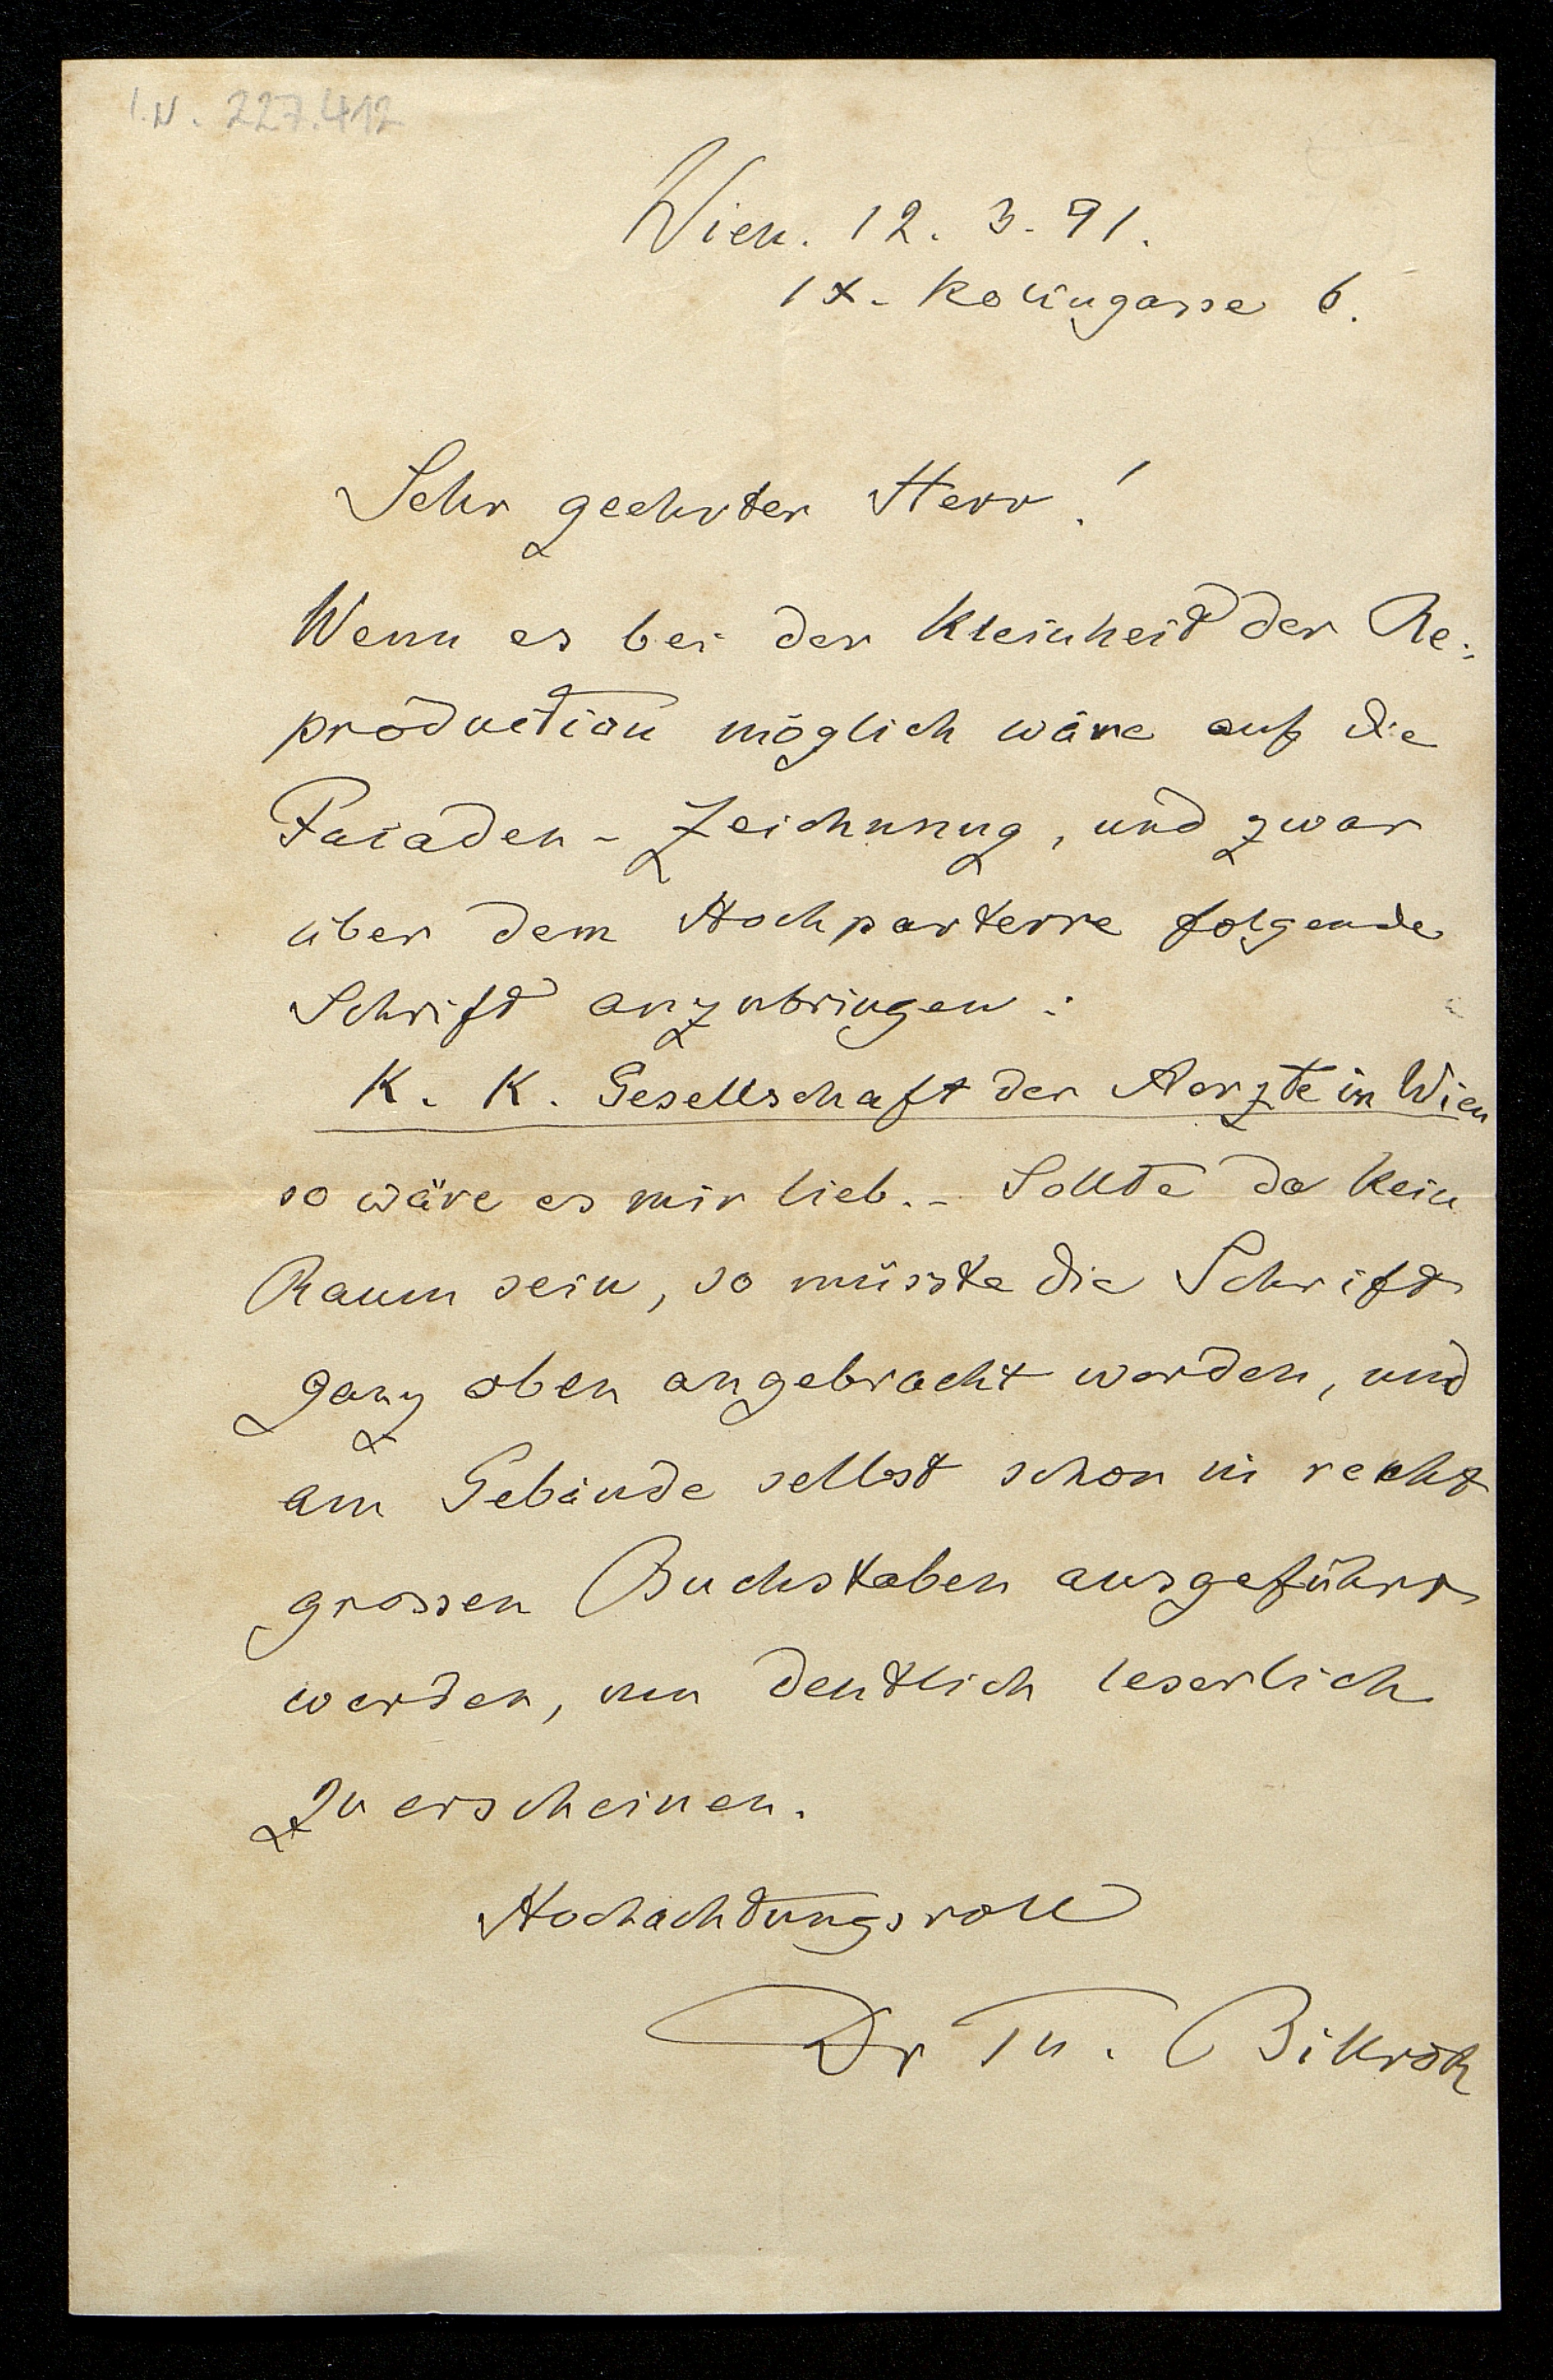 I.N. 227.412
Wien. 12. 3. 91.
IX. Kolingasse 6.
Sehr geehrter Herr!
Wenn es bei der Kleinheit der Re-
production möglich wäre auf die
Façaden-Zeichnung, und zwar
über dem Hochparterre folgende
Schrift anzubringen:
K. K. Gesellschaft der Aerzte in Wien
so wäre es mir lieb. – Sollte da kein
Raum sein, so müsste die Schrift
ganz oben angebracht werden, und
am Gebäude selbst schon in recht
grossen Buchstaben ausgeführt
werden, um deutlich leserlich
zu erscheinen.
Hochachtungsvoll
Dr Th. Billroth